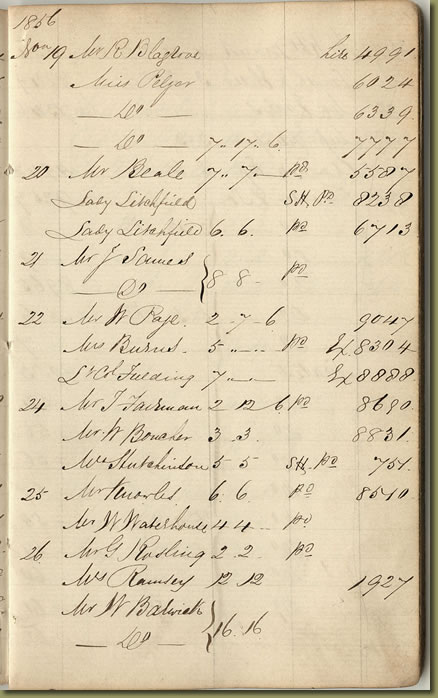 1856
Nov 19 Mr R Blagrove hire 4991
Miss Pelzer 6024
— Do — 6339.
— Do — 7.. 17.. 6 7777
20 Mr Beale 7.. 7.. — pd 5587
Lady Litchfield SH, Pd 8238
Lady Litchfield 6. 6. pd 6713
21 Mr J
— Do — 8 8 - pd
22 Mr W Page. 2 - 7 - 6 9047
Mrs Burns. 5 „ — „ — pd Ex 8304
Lt Col Fielding 7 „ — „ Ex 8888
24 Mr T 2 12 6 pd 8690.
Mr W 3 . 3 . 8831.
Mrs Hutchinson 5 5 SH, Pd 751.
25 Mr Knowles 6. 6. pd 8510
Mr W Waterhouse 4. 4. - pd
26 Mr G Rosling 2 .. 2 .. pd
Mrs Ramsey 12 12 1927
Mr W
— Do — 16. 16